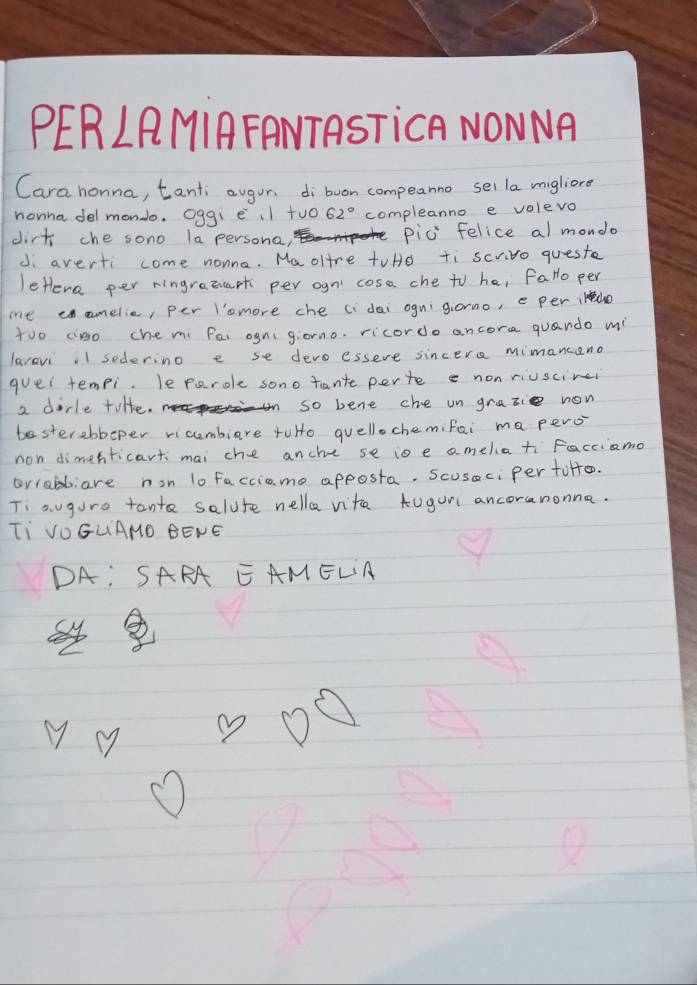 PER LA MIA FANTASTICA NONNA
Cara nonna, tanti auguri di buon compeanno sei la migliore
nonna del mondo. Oggi e' il tuo 62° compleanno e volevo
dirti che sono la persona, più felice al mondo
di averti come nonna. Ma oltre tutto ti scrivo questa
lettera per ringraziarti per ogni cosa che tu hai fatto per
me e amelia, per l'amore che ci dai ogni giorno, e per il
tuo cibo che mi fai ogni giorno. ricordo ancora quando mi
lavavi il sederino e se devo essere sincera mi mancano
quei tempi. le parole sono tante per te e non riuscirei
a dirle tutte. so bene che un grazie non
basterebbe per ricambiare tutto quello che mi fai ma però
non dimenticarti mai che anche se io e amelia ti facciamo
arrabbiare non lo facciamo apposta. Scusaci per tutto.
Ti auguro tanta salute nella vita Auguri ancora nonna.
Ti VOGLIAMO BENE
DA: SARA E AMELIA